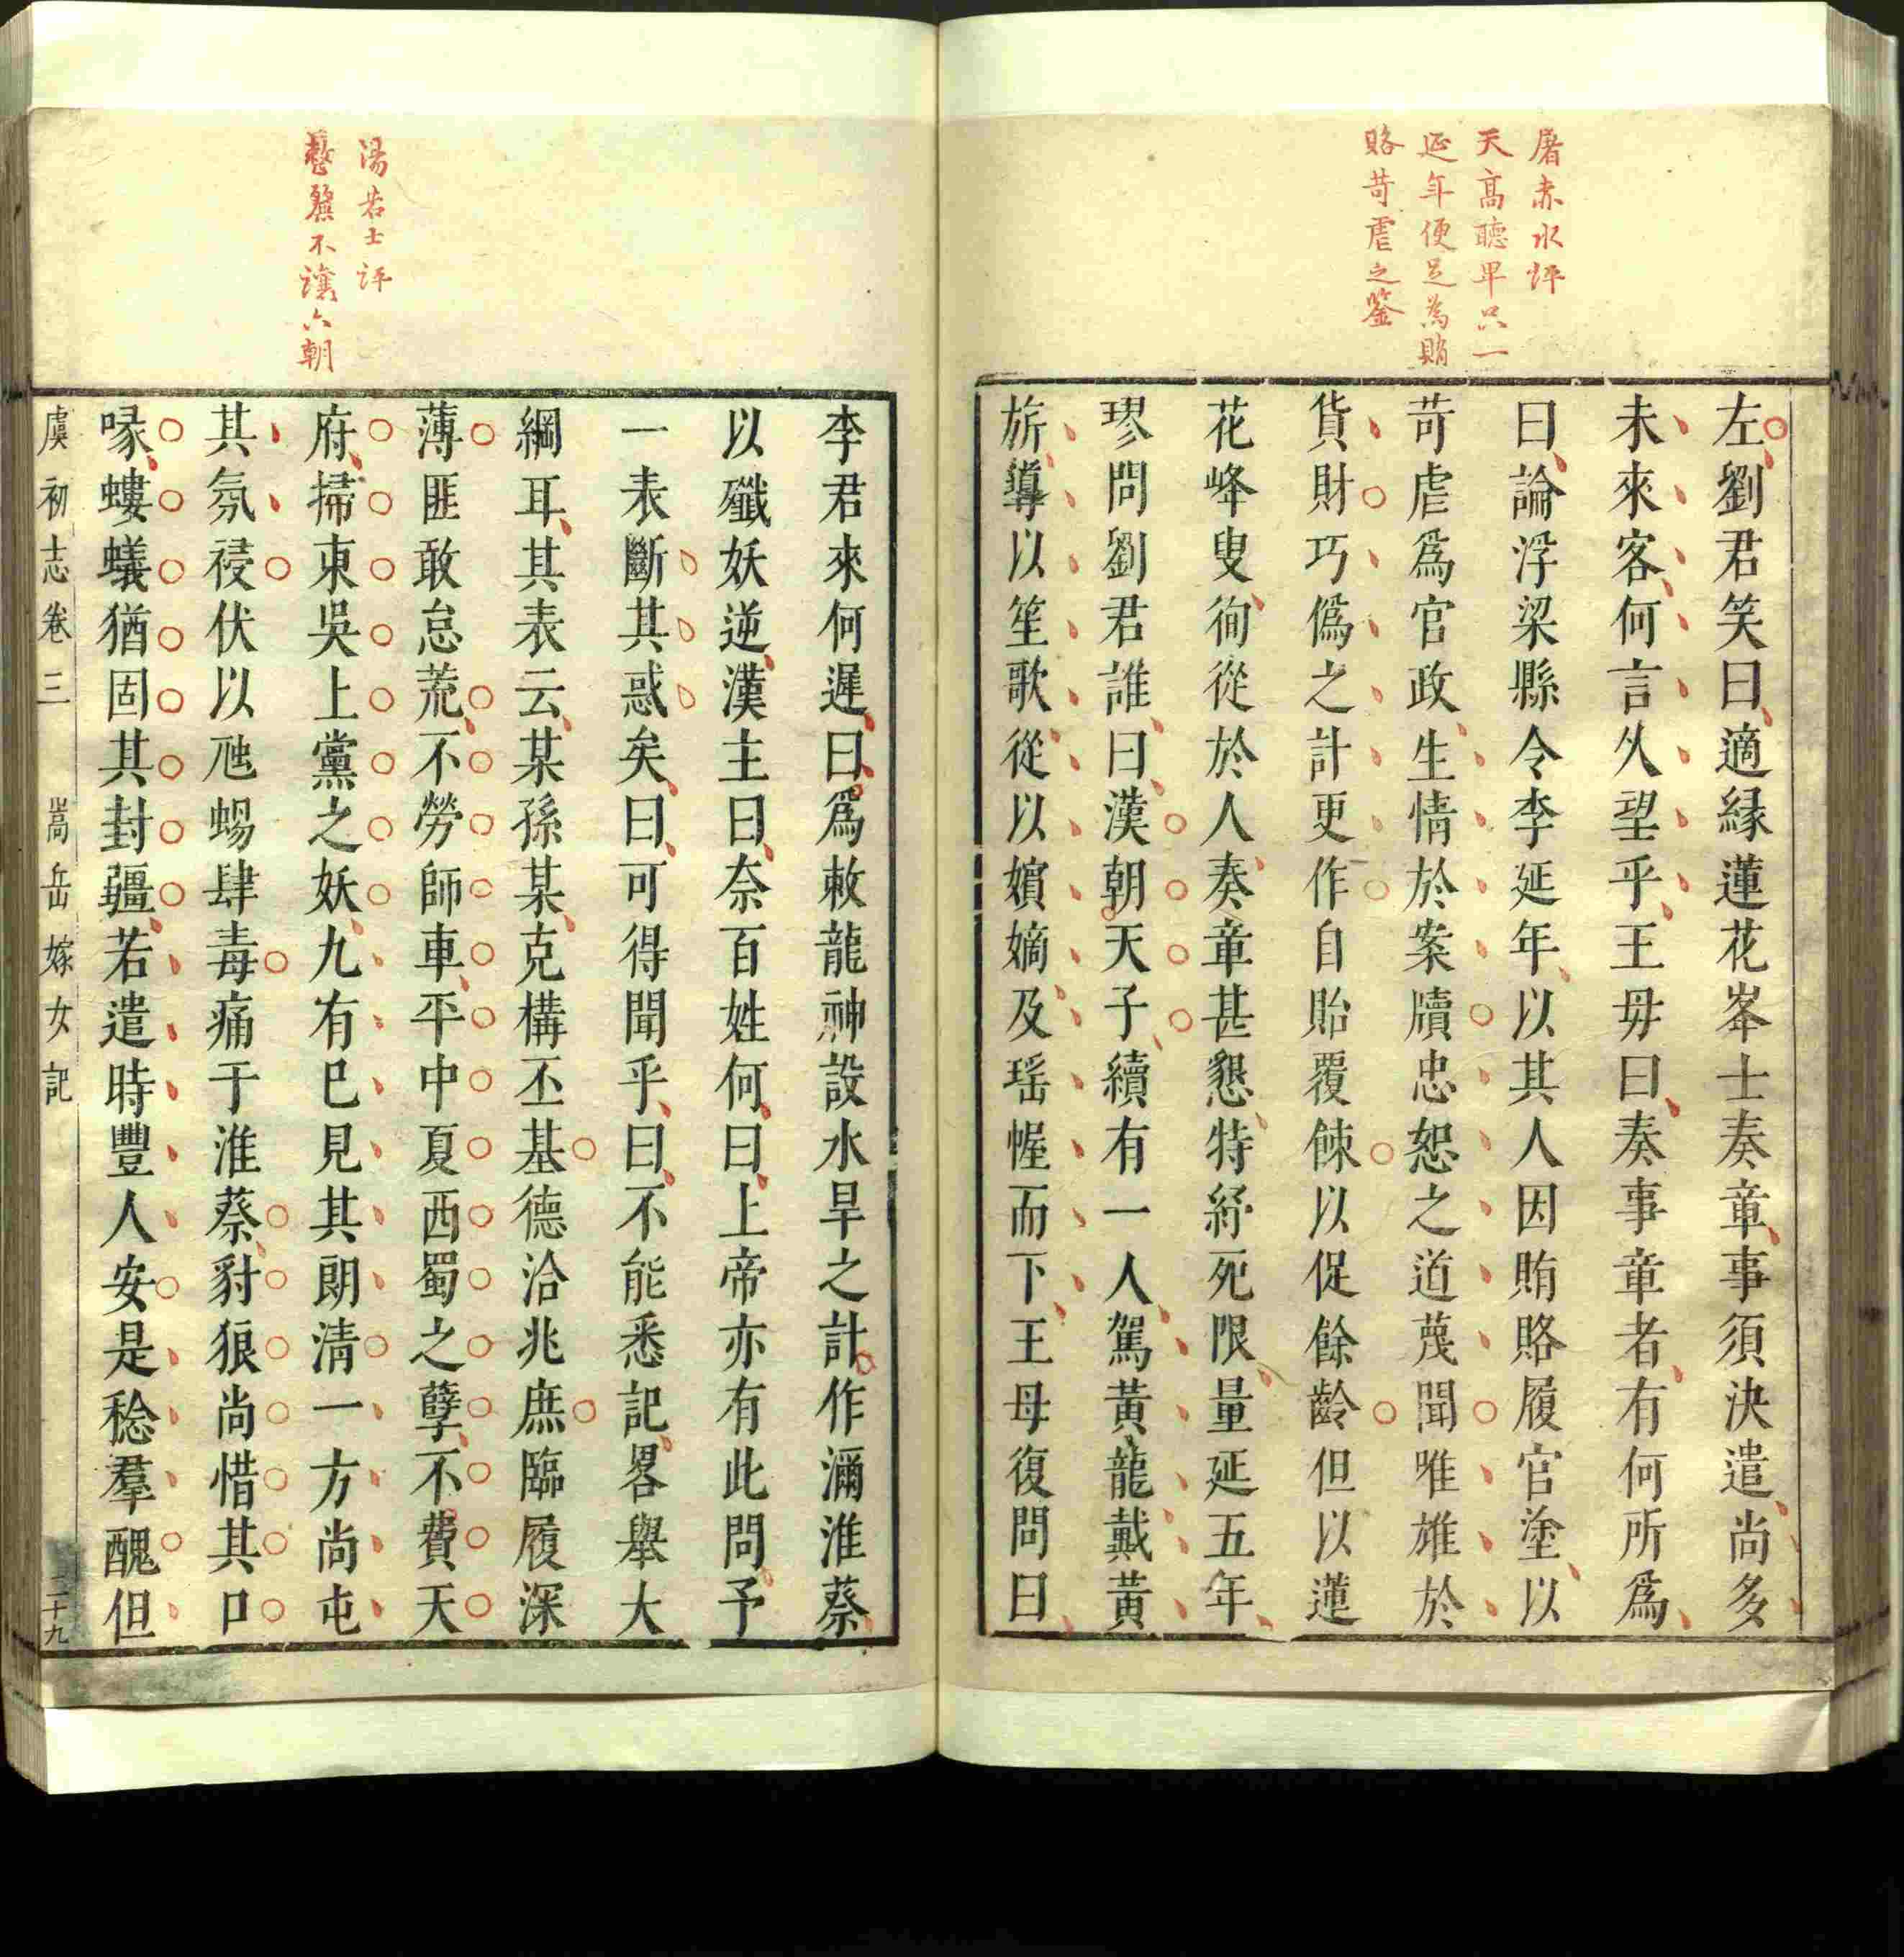 屠赤水評
天高聽卑只一
延年便足為賄
賂苛虐之鑒
左劉君笑曰適緣蓮花峯士奏章事須決遣尚多
未來客何言久望乎王毋曰奏事章者有何所爲
曰論浮梁縣令李延年以其人因賄賂履官塗以
苛虐爲官政生情於案牘忠恕之道蔑聞唯雄於
貨財巧僞之計更作自貽覆餗以促餘齡但以蓮
花峰叟徇從於人奏章甚懇特紓死限量延五年
璆問劉君誰曰漢朝天子續有一人駕黃龍戴黃
旂導以笙歌從以嬪嫡及瑶幄而下王母復問曰
湯若士評
整麗不讓六朝
李君來何遲曰爲敕龍神設水旱之計作瀰淮蔡
以殲妖逆漢主曰奈百姓何曰上帝亦有此問予
一表斷其惑矣曰可得聞乎曰不能悉記畧舉大
綱耳其表云某孫某克構丕基德洽兆庶臨履深
薄匪敢怠荒不勞師車平中夏西蜀之孽不費天
府掃東吳上黨之妖九有已見其朗清一方尚屯
其氛祲伏以虺蜴肆毒痛于淮蔡豺狼尚惜其口
喙螻蟻猶固其封疆若遣時豐人安是稔羣醜但
虞初志卷三 嵩岳嫁女記 二十九